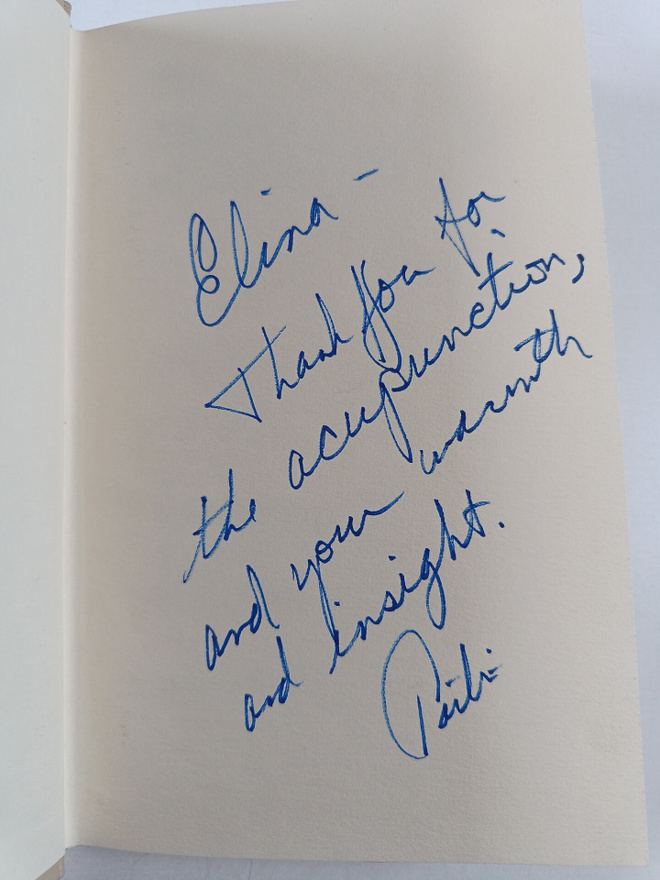 Elina -
Thank you for
the acupunction,
and your warmth
and insight.